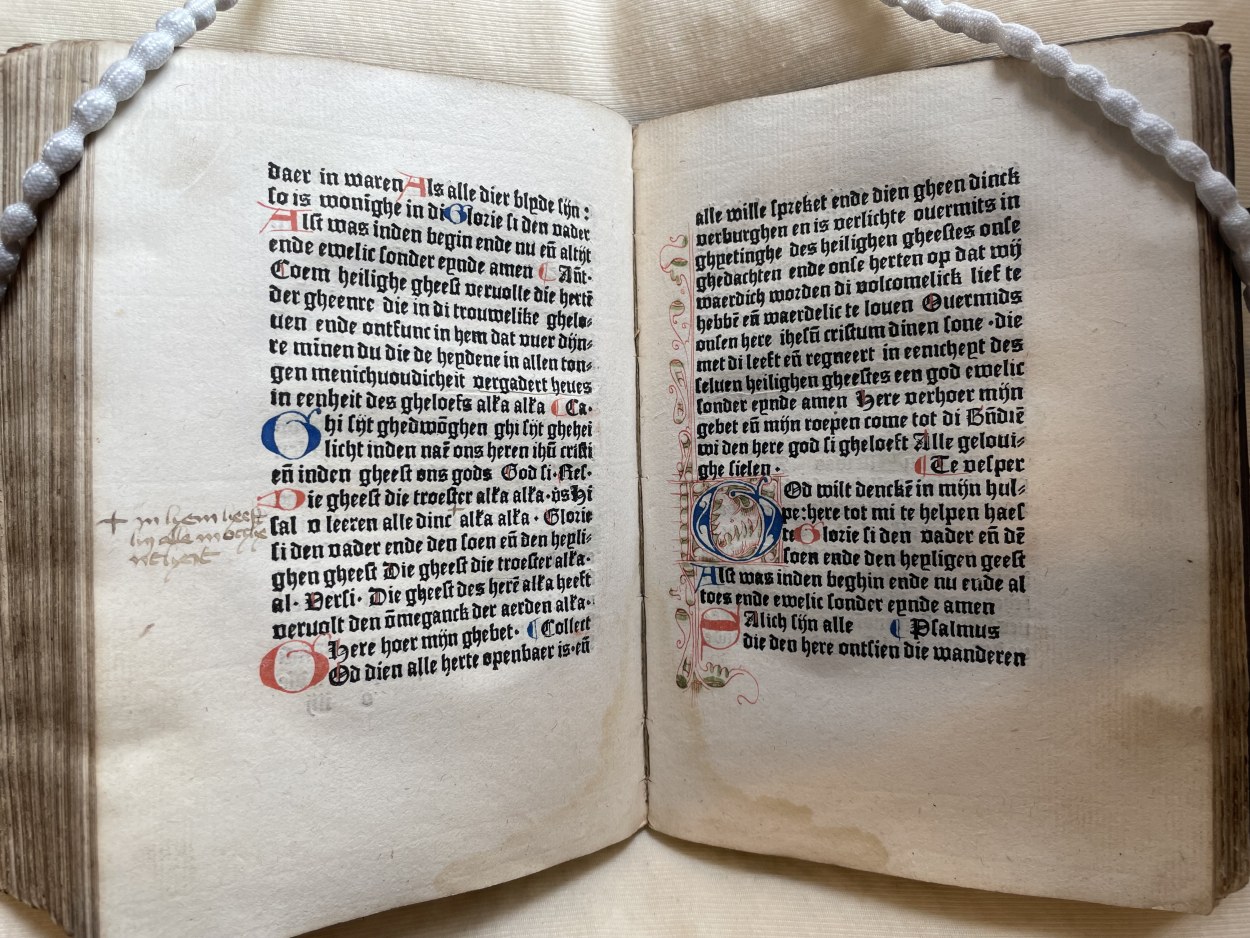 daer in waren Als alle dier blyde sijn :
so is wonĩghe in di Glorie si den vader
Alst was inden begin ende nu eñ altijt
ende ewelic sonder eynde amen ¶ Añt·
Coem heilighe gheest vervolle die hertẽ
der gheenre die in di trouwelike ghelo⸗
uen ende ontfunc in hem dat vuer dijn⸗
re mĩnen du die de heydene in allen ton⸗
gen menichuoudicheit vergadert heues
in eenheit des gheloefs alła alła ¶ Ca·
Ghi sijt ghedwõghen ghi sijt ghehei
licht inden nañ ons heren ihũ cristi
eñ inden gheest ons gods God si· Res·
Die gheest die troester alła alła · v̄s Hi
sal v leeren alle dinc + alła alła · Glorie
si den vader ende den soen eñ den heyli⸗
ghen gheest Die gheest die troester alła·
al· Versi· Die gheest des herẽ alła heeft
vervolt den õmeganck der aerden alła·
Here hoer mijn ghebet· ¶ Collect
God dien alle herte openbaer is·eñ
+ in hem heeft
hi alle moghe
ntheit
o iij
alle wille spreket ende dien gheen dinck
verburghen en is verlichte ouermits in
ghyetinghe des heilighen gheestes onse
ghedachten ende onse herten op dat wij
waerdich worden di volcomelick lief te
hebbẽ eñ waerdelic te louen Ouermids
onsen here ihesũ cristum dinen sone ·die
met di leeft eñ regneert in eenicheyt des
seluen heilighen gheestes een god ewelic
sonder eynde amen Here verhoer mijn
gebet eñ mijn roepen come tot di Bñdiẽ
wi den here god si gheloeft Alle geloui⸗
ghe sielen · ¶ Te vesper
God wilt denckẽ in mijn hul⸗
pe:here tot mi te helpen haes
te Glorie si den vader eñ dẽ
soen ende den heyligen geest
Alst was inden beghin ende nu ende al
toes ende ewelic sonder eynde amen
Salich sijn alle ¶ Psalmus
die den here ontsien die wanderen